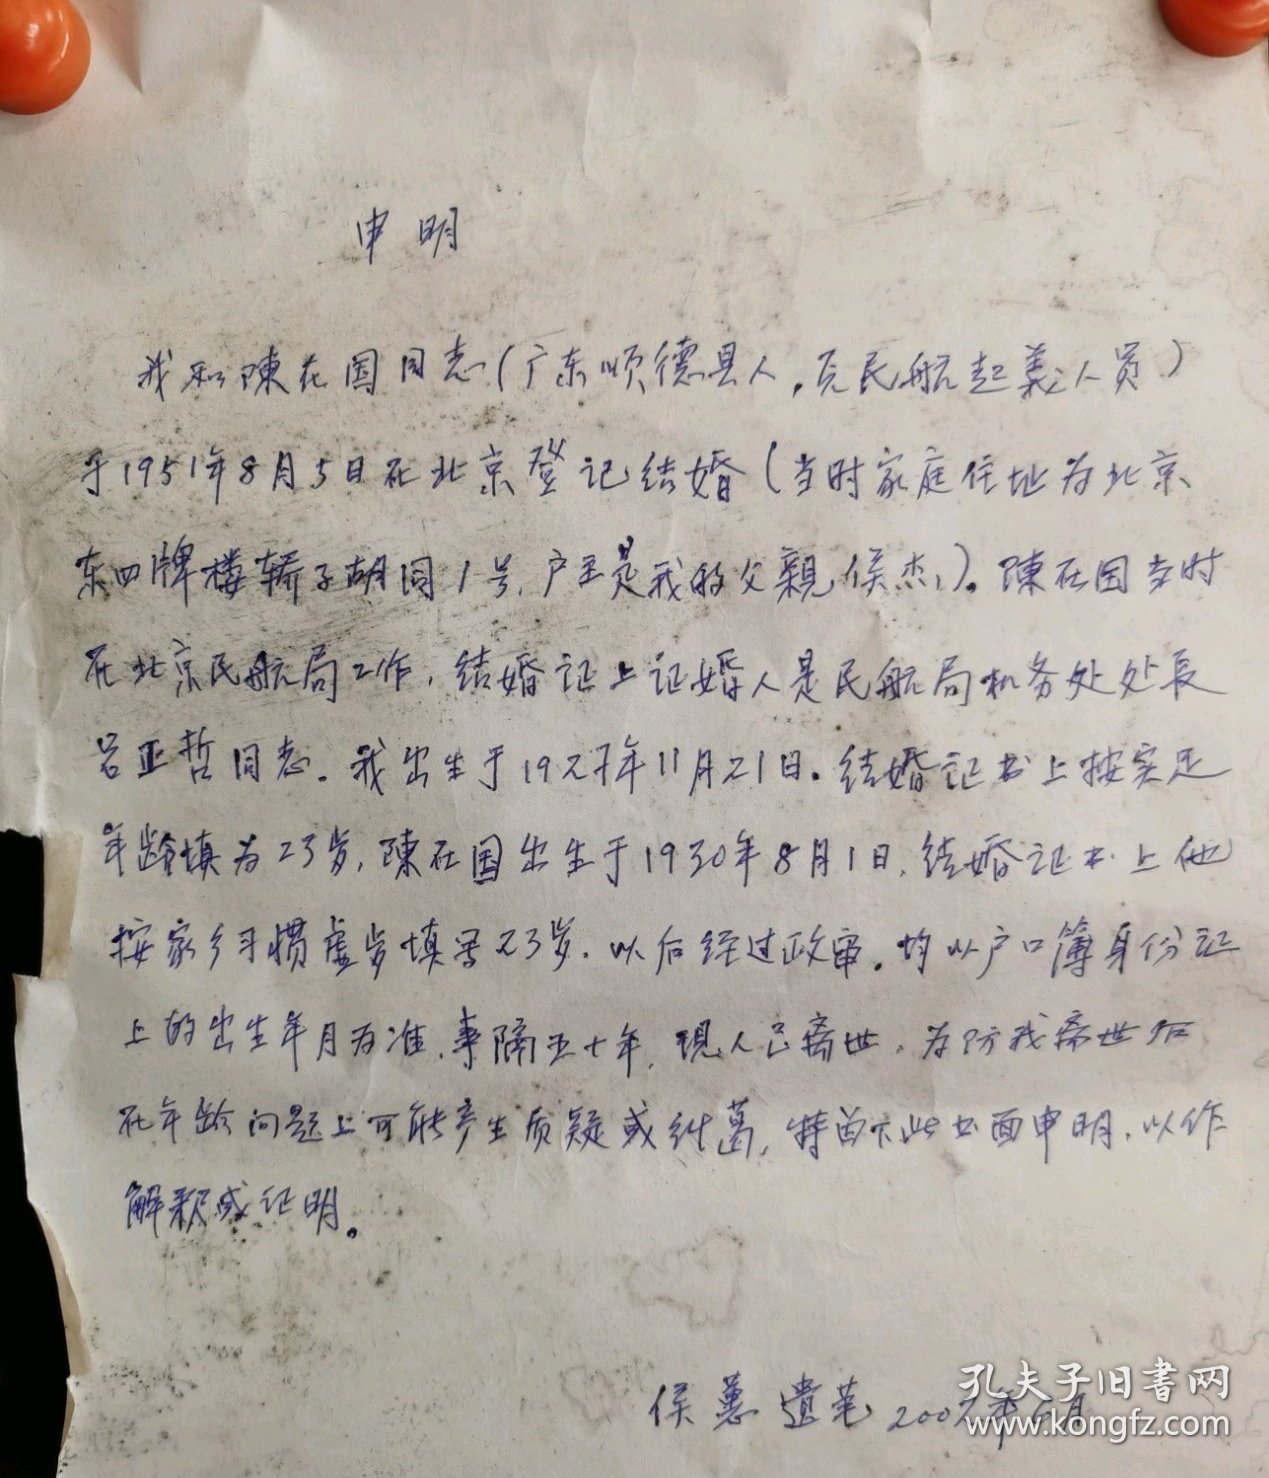 申明
我和陳在国同志(广东顺德县人,原民航起義人员)
于1951年8月5日在北京登记结婚(当时家庭住址为北京
东四牌楼轿子胡同1号,户主是我的父親侯杰,)。陳在国当时
在北京民航局工作,结婚证上证婚人是民航局机务处处長
吕亚哲同志。我出生于1927年11月21日。结婚证书上按实足
年龄填为23岁,陳在国出生于1930年8月1日,结婚证书上他
按家乡习惯虚岁填写23岁。以后经过政审。均以户口簿身份证
上的出生年月为准,事隔五十年,现人已离世,为防我离世后
在年龄问题上可能产生质疑或纠葛,特留下此书面申明,以作
解釈或证明。
侯蕙遗笔 2002年6月
孔夫子旧书网
www.kongfz.com